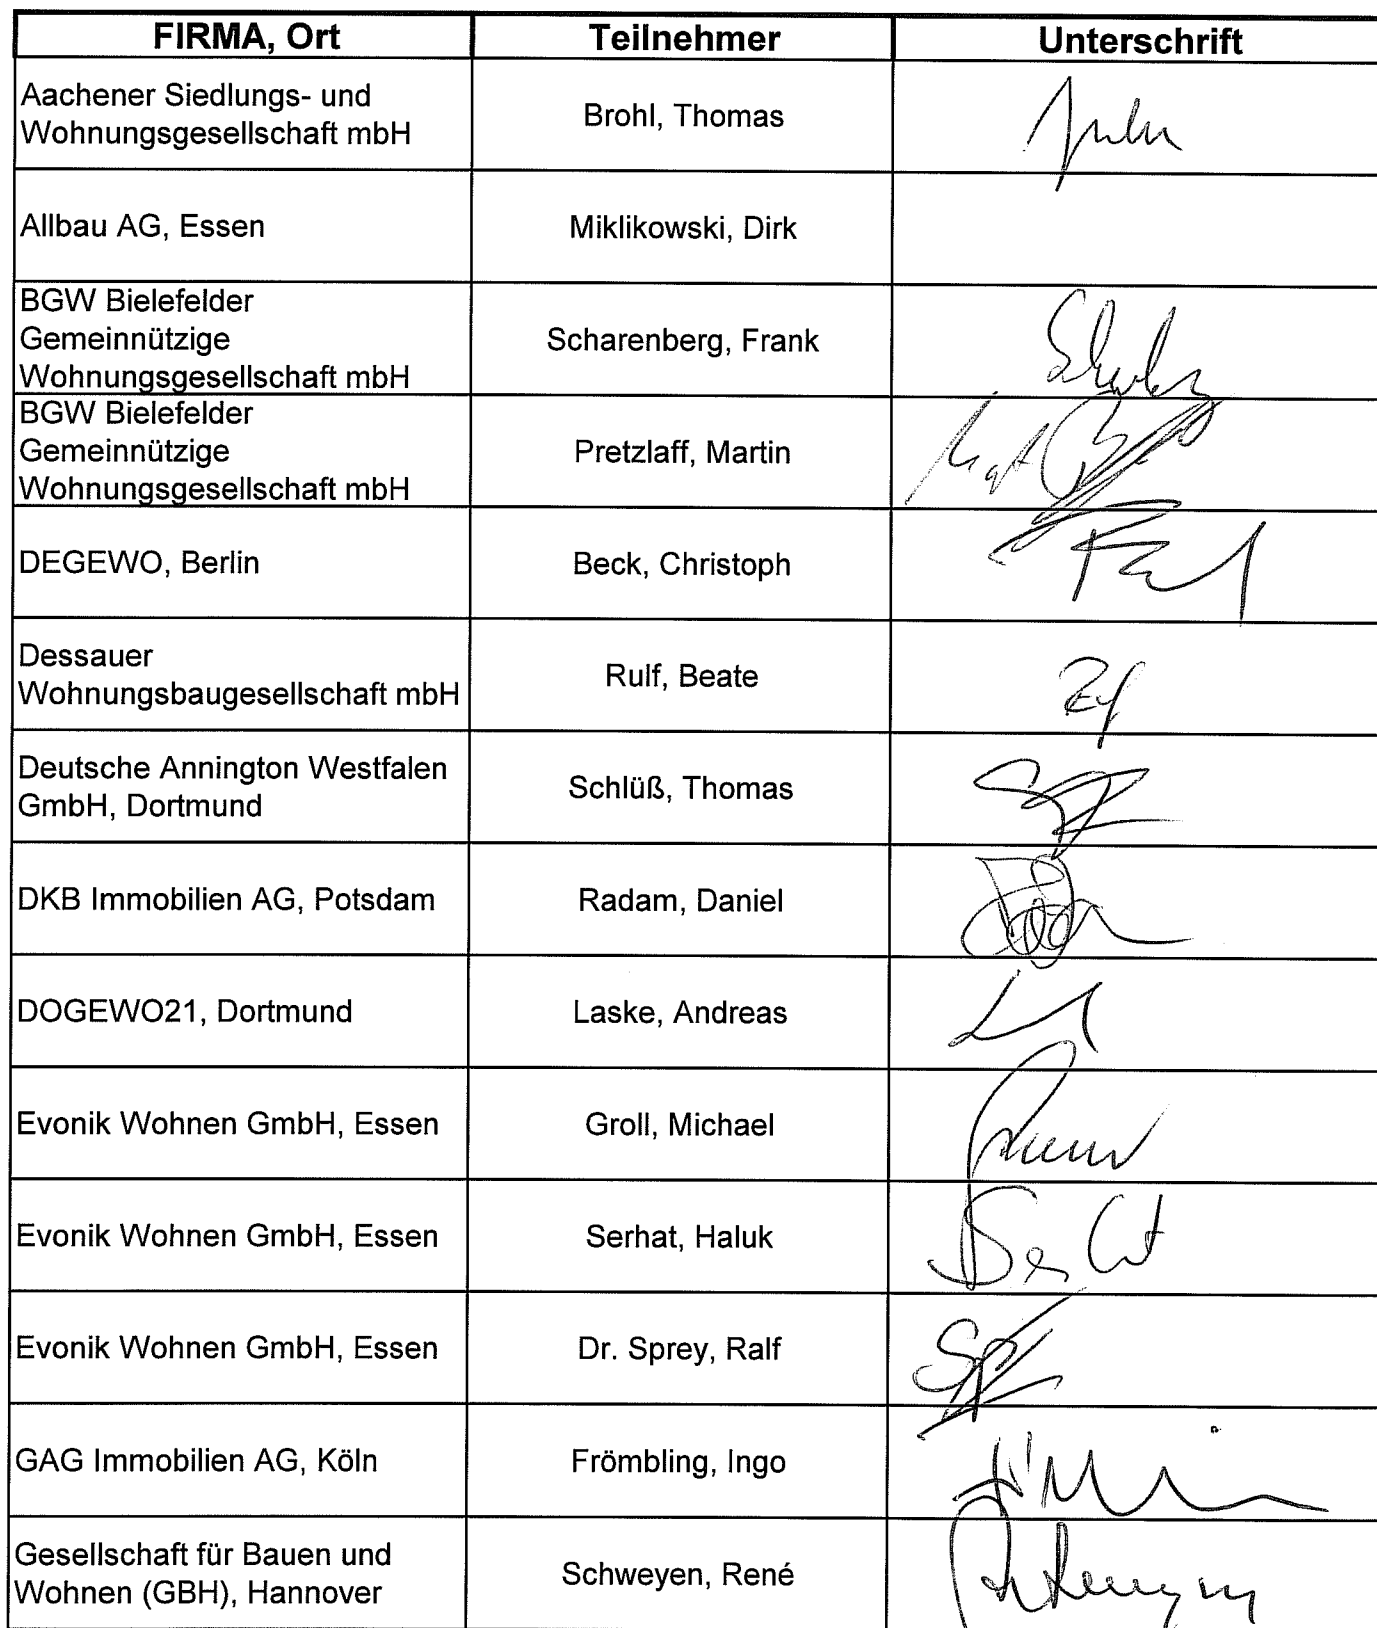 FIRMA, Ort Teilnehmer Unterschrift
Aachener Siedlungs- und
Wohnungsgesellschaft mbH
Brohl, Thomas
Allbau AG, Essen
Miklikowski, Dirk
BGW Bielefelder
Gemeinnützige
Wohnungsgesellschaft mbH
Scharenberg, Frank
BGW Bielefelder
Gemeinnützige
Wohnungsgesellschaft mbH
Pretzlaff, Martin
DEGEWO, Berlin
Beck, Christoph
Dessauer
Wohnungsbaugesellschaft mbH
Rulf, Beate
Deutsche Annington Westfalen
GmbH, Dortmund
Schlüß, Thomas
DKB Immobilien AG, Potsdam
Radam, Daniel
DOGEWO21, Dortmund
Laske, Andreas
Evonik Wohnen GmbH, Essen
Groll, Michael
Evonik Wohnen GmbH, Essen
Serhat, Haluk
Evonik Wohnen GmbH, Essen
Dr. Sprey, Ralf
GAG Immobilien AG, Köln
Frömbling, Ingo
Gesellschaft für Bauen und
Wohnen (GBH), Hannover
Schweyen, René